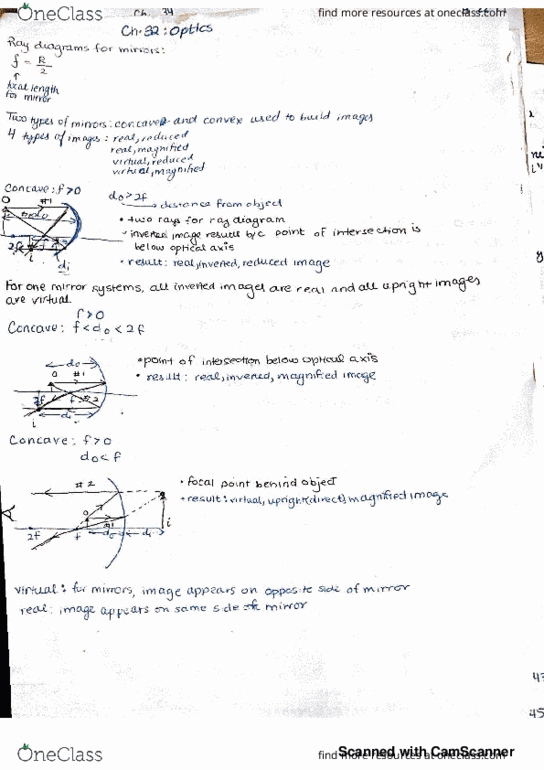 OneClass
find more resources at oneclass.com
Ch. 34
Ch. 32: Optics
Ray diagrams for mirrors:
f = R/2
focal length
for mirror
Two types of mirrors: concave and convex used to build images
4 types of images: real, reduced
real, magnified
virtual, reduced
virtual, magnified
Concave: f>0
do>2f
distance from object
• two rays for ray diagram
• inverted image results b/c point of intersection is
below optical axis
• result: real, inverted, reduced image
O
#1
2f
i
di
For one mirror systems, all inverted images are real and all upright images
are virtual.
f>0
Concave: f<do<2f
• point of intersection below optical axis
• result: real, inverted, magnified image
do
O
#1
2f
f
#2
di
i
Concave: f>0
do<f
• focal point behind object
• result: virtual, upright (direct) magnified image
#2
O
#1
i
2f
f
do
di
virtual: for mirrors, image appears on opposite side of mirror
real: image appears on same side of mirror
43
45
OneClass
find more resources at oneclass.com
Scanned with CamScanner